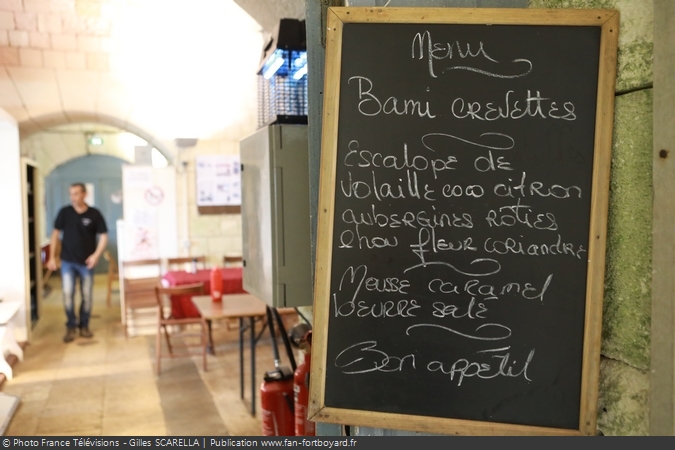 Menu
Bami crevettes
Escalope de
volaille coco citron
aubergines rôties
chou fleur coriandre
Mousse caramel
beurre salé
Bon appétit
© Photo France Télévisions - Gilles SCARELLA | Publication www.fan-fortboyard.fr